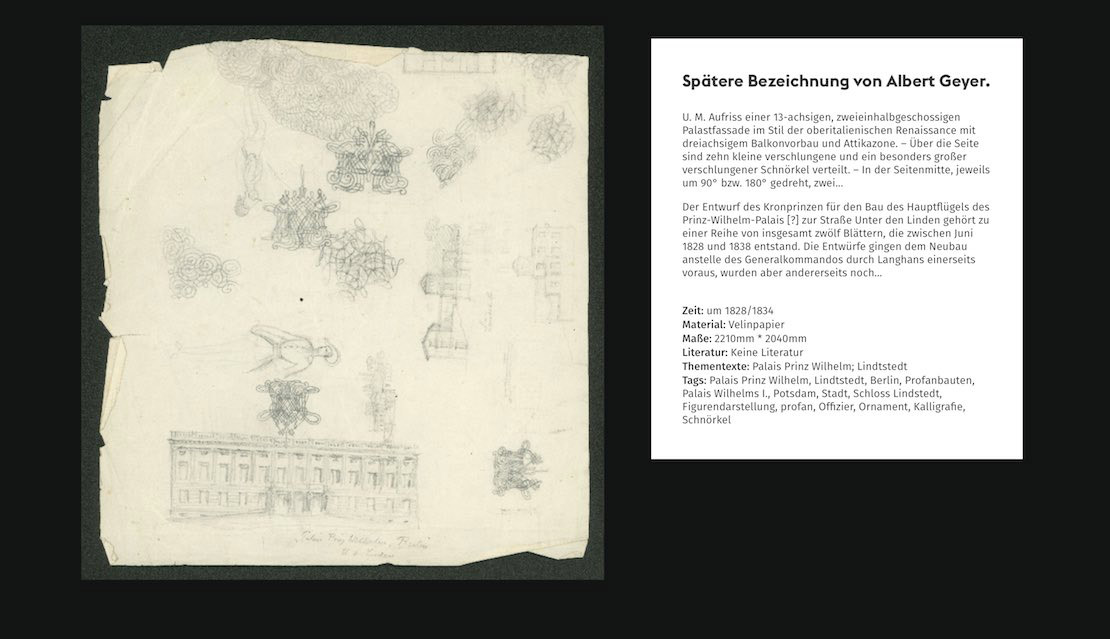 Spätere Bezeichnung von Albert Geyer.
U. M. Aufriss einer 13-achsigen, zweieinhalbgeschossigen
Palastfassade im Stil der oberitalienischen Renaissance mit
dreiachsigem Balkonvorbau und Attikazone. – Über die Seite
sind zehn kleine verschlungene und ein besonders großer
verschlungener Schnörkel verteilt. – In der Seitenmitte, jeweils
um 90° bzw. 180° gedreht, zwei...
Der Entwurf des Kronprinzen für den Bau des Hauptflügels des
Prinz-Wilhelm-Palais [?] zur Straße Unter den Linden gehört zu
einer Reihe von insgesamt zwölf Blättern, die zwischen Juni
1828 und 1838 entstand. Die Entwürfe gingen dem Neubau
anstelle des Generalkommandos durch Langhans einerseits
voraus, wurden aber andererseits noch...
Zeit: um 1828/1834
Material: Velinpapier
Maße: 2210mm * 2040mm
Literatur: Keine Literatur
Thementexte: Palais Prinz Wilhelm; Lindtstedt
Tags: Palais Prinz Wilhelm, Lindtstedt, Berlin, Profanbauten,
Palais Wilhelms I., Potsdam, Stadt, Schloss Lindstedt,
Figurendarstellung, profan, Offizier, Ornament, Kalligrafie,
Schnörkel
Palais Prinz Wilhelm, Berlin
U. d. Linden